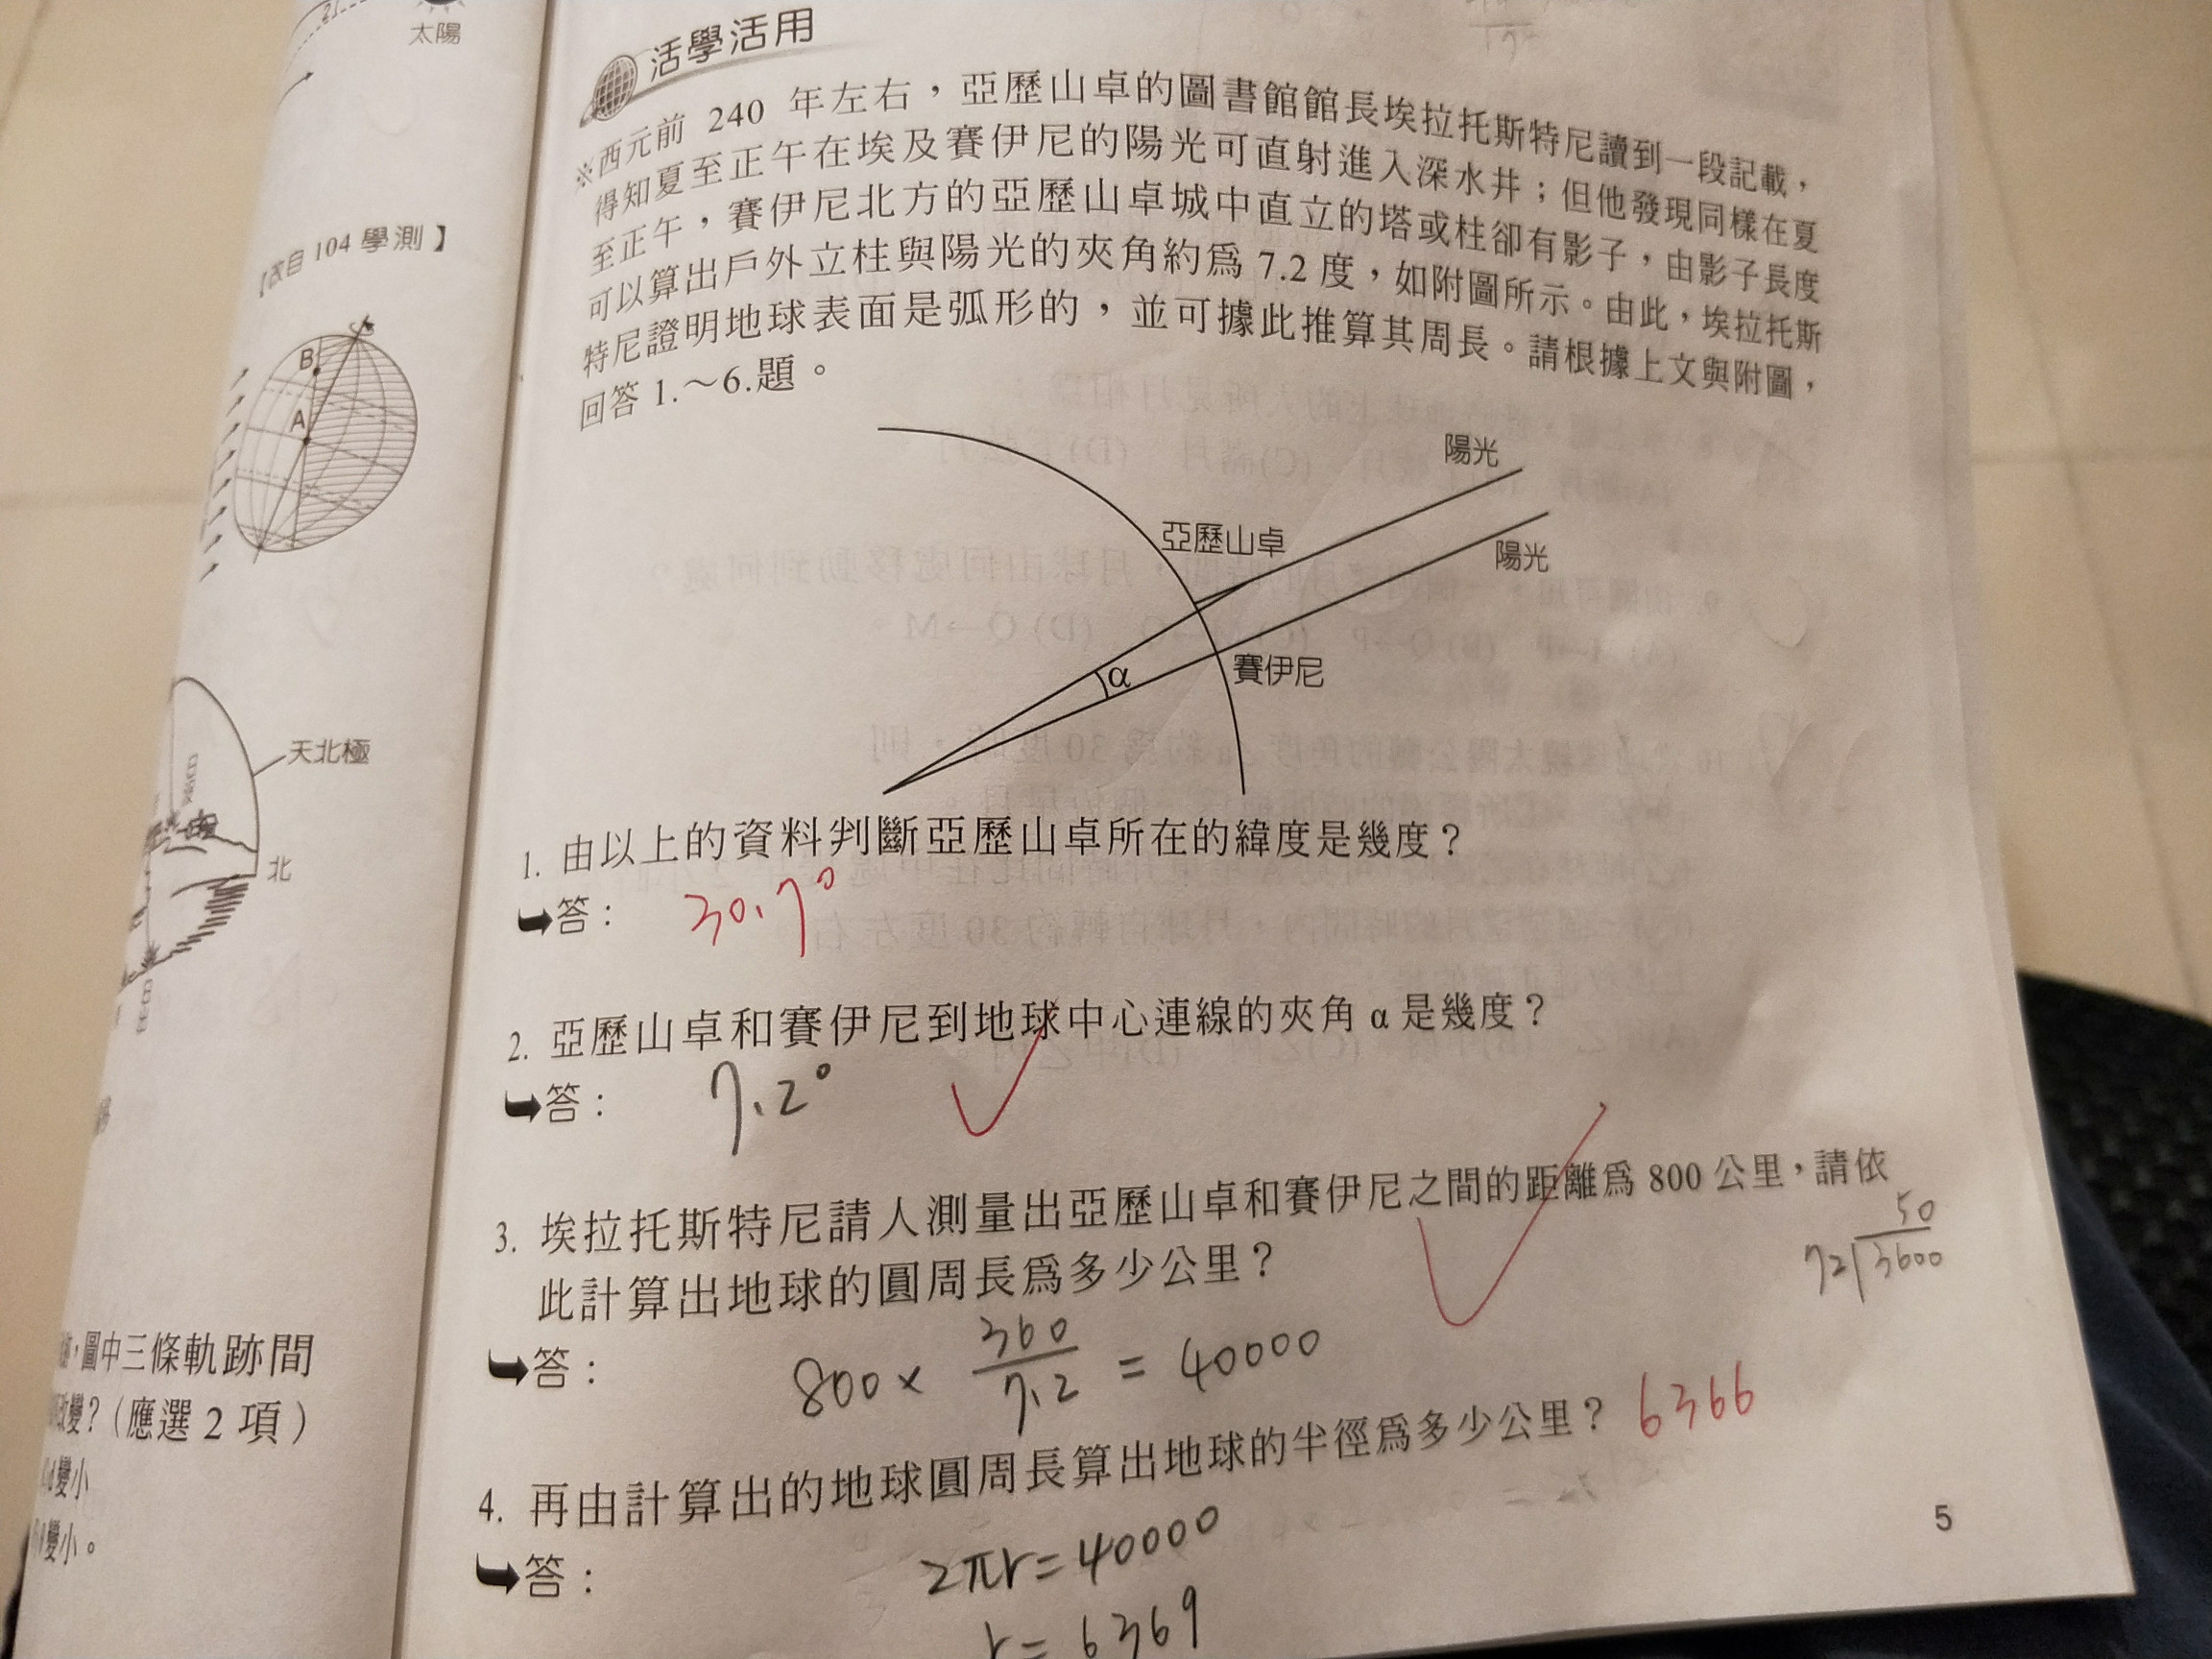 太陽
【改自 104 學測】
B
A
天北極
北
圖中三條軌跡間
改變？(應選 2 項)
變小
變小。
活學活用
※西元前 240 年左右，亞歷山卓的圖書館館長埃拉托斯特尼讀到一段記載，
得知夏至正午在埃及賽伊尼的陽光可直射進入深水井；但他發現同樣在夏
至正午，賽伊尼北方的亞歷山卓城中直立的塔或柱卻有影子，由影子長度
可以算出戶外立柱與陽光的夾角約為 7.2 度，如附圖所示。由此，埃拉托斯
特尼證明地球表面是弧形的，並可據此推算其周長。請根據上文與附圖，
回答 1.～6.題。
陽光
亞歷山卓
陽光
賽伊尼
α
1. 由以上的資料判斷亞歷山卓所在的緯度是幾度？
➥答： 30.7°
2. 亞歷山卓和賽伊尼到地球中心連線的夾角 α 是幾度？
➥答： 7.2°
3. 埃拉托斯特尼請人測量出亞歷山卓和賽伊尼之間的距離為 800 公里，請依
此計算出地球的圓周長為多少公里？
50
72 3600
➥答： 800 × 360/7.2 = 40000
4. 再由計算出的地球圓周長算出地球的半徑為多少公里？ 6366
➥答： 2πr = 40000
r = 6369
5